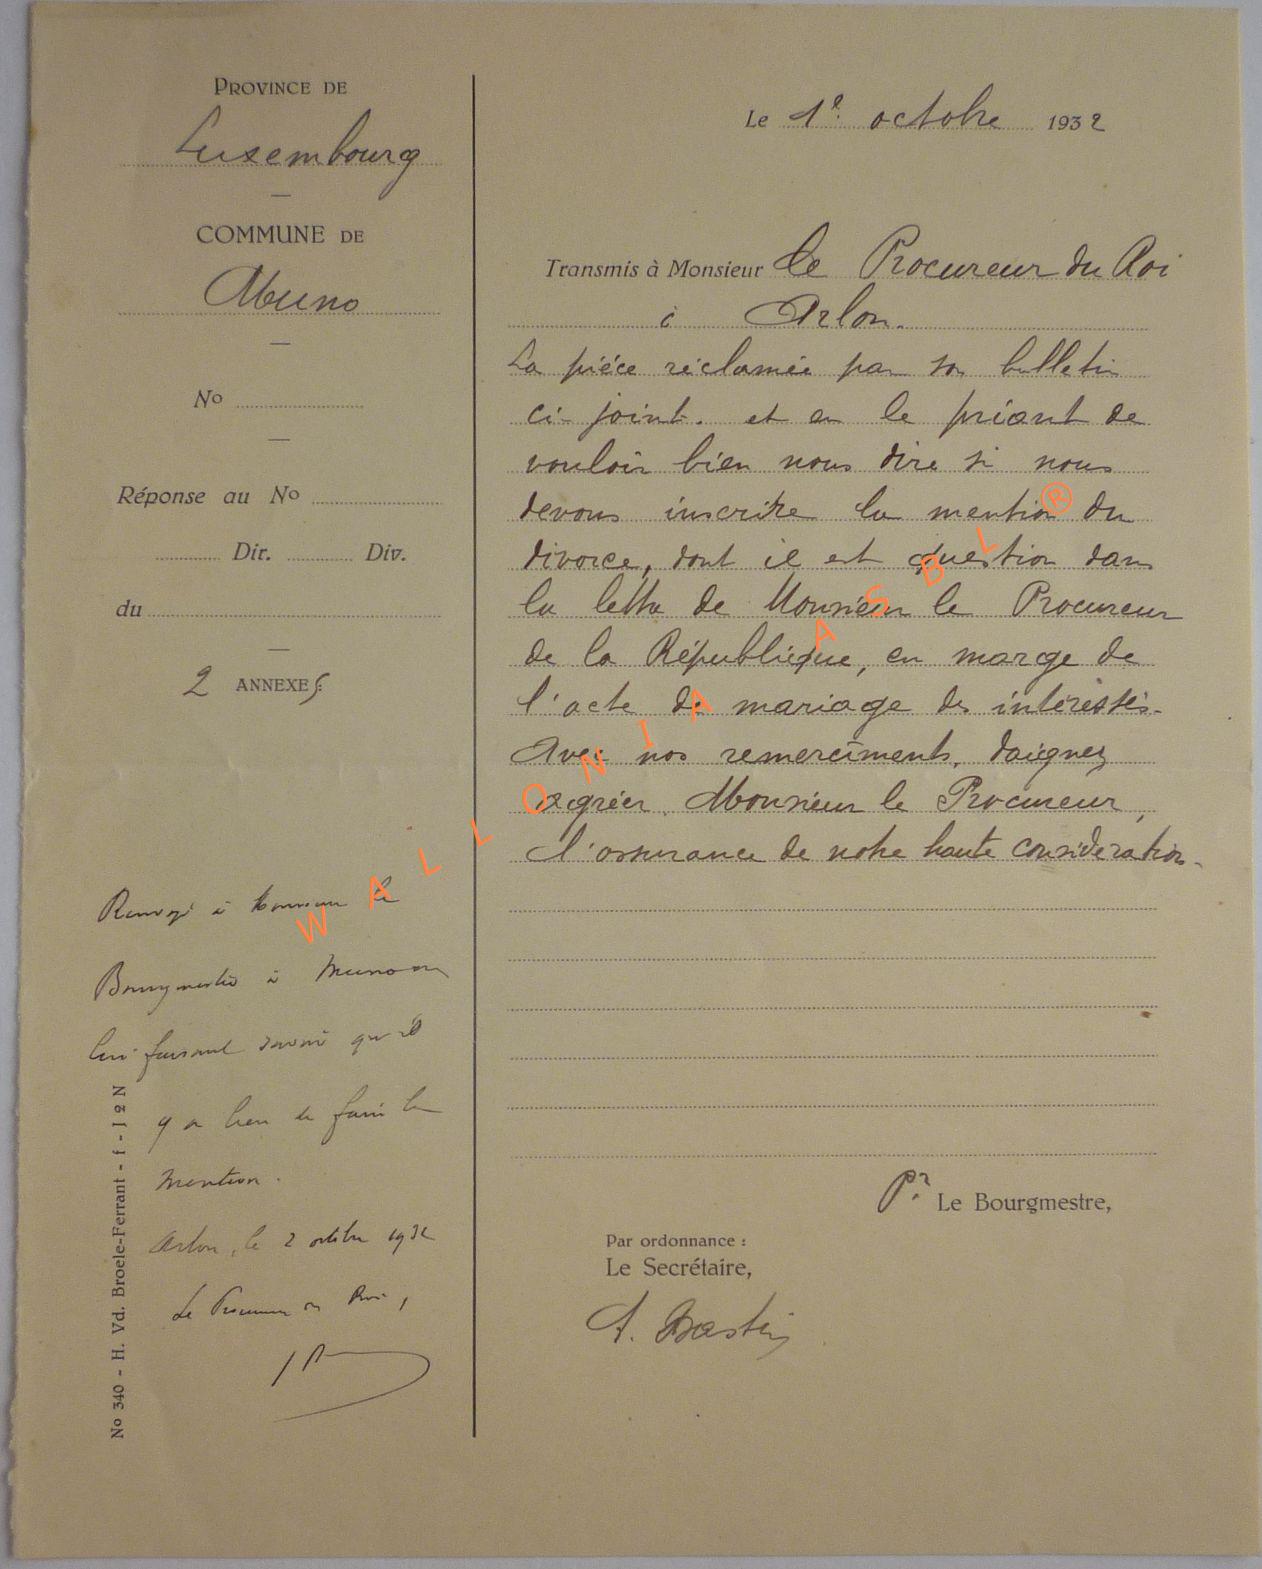 PROVINCE DE
Luxembourg
COMMUNE DE
Muno
No
Réponse au No
Dir. Div.
du
2 ANNEXES
Renvoyé à Monsieur le
Bourgmestre à Muno en
lui faisant savoir qu'il
y a lieu de faire la
mention.
Arlon, le 2 octobre 1932
Le Procureur du Roi,
No 340 - H. Vd. Broele-Ferrant - f - 12 N
Le 1r octobre 1932
Transmis à Monsieur le Procureur du Roi
à Arlon.
La pièce réclamée par son bulletin
ci-joint. et en le priant de
vouloir bien nous dire si nous
devons inscrire la mention du
divorce, dont il est question dans
la lettre de Monsieur le Procureur
de la République, en marge de
l'acte de mariage des intéressés.
Avec nos remercîments, daignez
agréer, Monsieur le Procureur,
l'assurance de notre haute considération.
Pr Le Bourgmestre,
Par ordonnance :
Le Secrétaire,
A. Bastin
WALLONIA ASBL ®